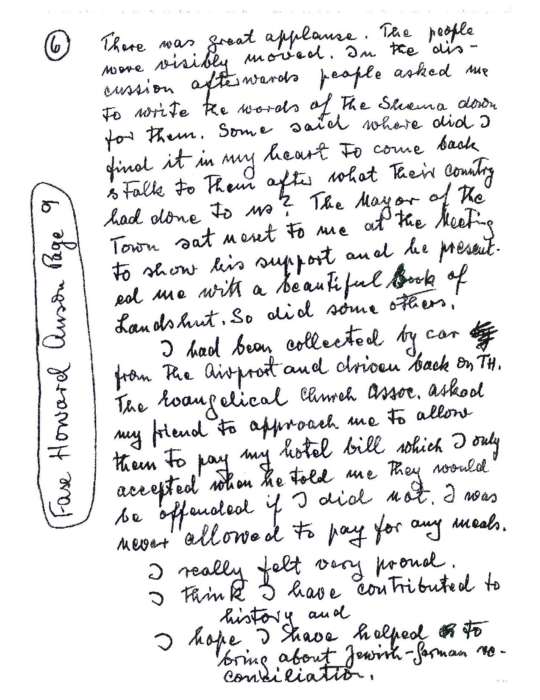 6
There was great applause. The people
were visibly moved. In the dis-
cussion afterwards people asked me
to write the words of the Shema down
for them. Some said where did I
find it in my heart to come back
& talk to them after what their country
had done to us? The Mayor of the
Town sat next to me at the Meeting
to show his support and he present-
ed me with a beautiful book of
Landshut. So did some others.
I had been collected by car
from the Airport and driven back on TH.
The Evangelical Church Assoc. asked
my friend to approach me to allow
them to pay my hotel bill which I only
accepted when he told me they would
be offended if I did not. I was
never allowed to pay for any meals.
I really felt very proud.
I think I have contributed to
history and
I hope I have helped to
bring about Jewish-German re-
conciliation.
Howard Anson Page 9